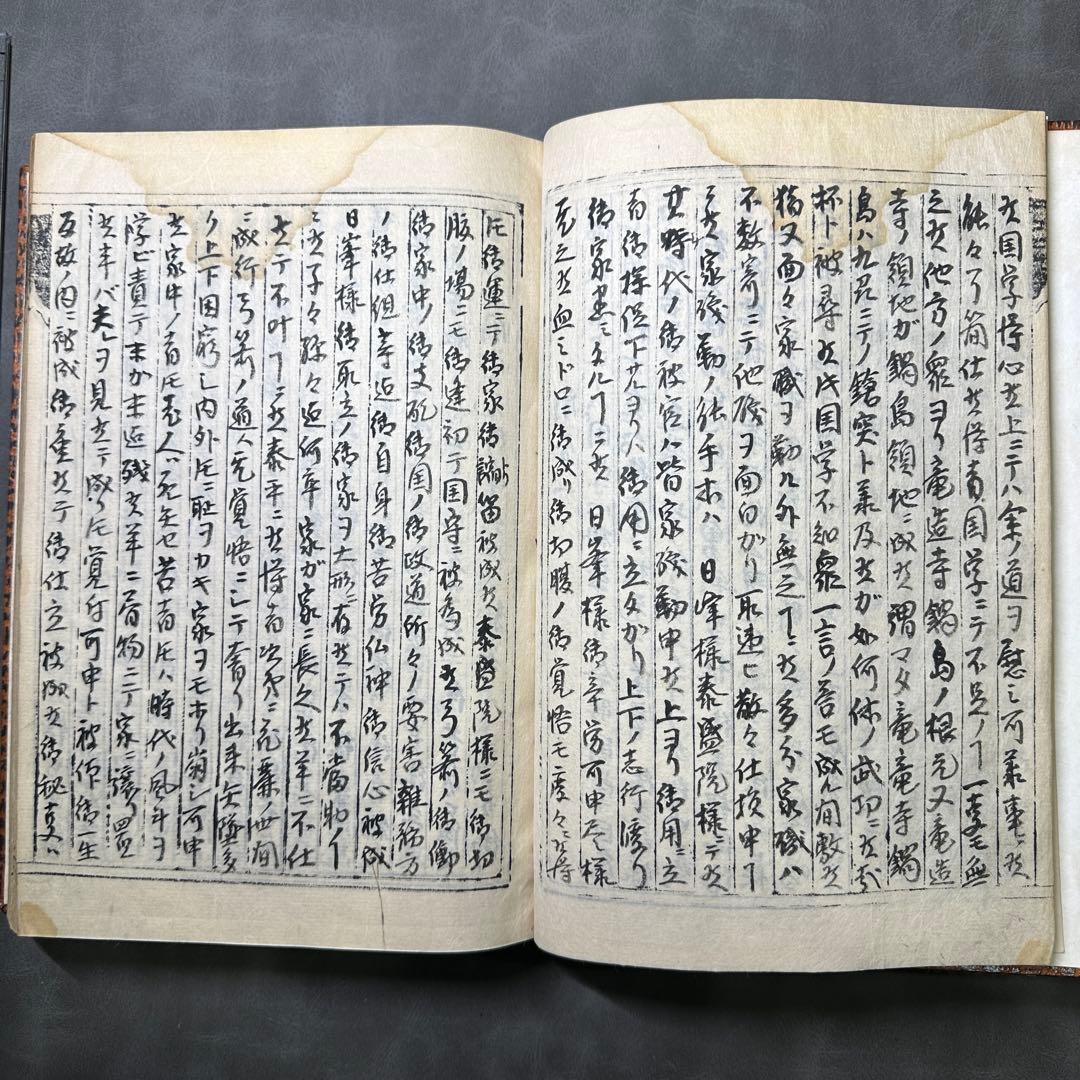 候国学得心候上ニテハ余ノ道ヲ慰ミ可承事ニ候
能々了簡仕候得者国学ニテ不足ノ丁一支モ無
之候他方ノ衆ヨリ竜造寺鍋島ノ根元又竜造
寺ノ領地ガ鍋島領地ニ成候謂マタ竜竜寺鍋
島ハ九州ニテノ鎗突ト承及候ガ如何体ノ武功ニ候哉
杯ト被尋候時国学不知衆一言ノ答モ成ル間敷候
猶又面々家職ヲ勤ル外無之丁ニ候多分家職ハ
不数寄ニテ他職ヲ面白ガリ取違ヒ散々仕損申丁
ニ候家職勤ノ能手本ハ日峯様泰盛院様ニテ候
其時代ノ御被官ハ皆家職勤申候上ヨリ御用ニ立
者御探促下ヨリハ御用ニ立タガリ上下ノ志行渡リ
御家黒ミタル丁ニ候日峯様御辛労可申尽様
無之候血ミドロニ御成リ御切腹ノ御覚悟モ度々ニ候得
氏御運ニテ御家御踏留被成候泰盛院様ニモ御切
腹ノ場ニモ御逢初テ国守ニ被為成候弓箭ノ御働
御家中ノ御支配御国ノ御政道所々ノ要害雑務方
ノ御仕組等迄御自身御苦労仏神御信心被成
日峯様御取立ノ御家ヲ大形ニ存候テハ不当助丁
ニ候子々孫々迄何卒家ガ家ニ長久候羊ニ不仕
候テ不叶丁ニ候泰平ニ候得者次第ニ花麗ノ世間
ニ成行弓箭ノ道ハ無覚悟ニシテ奢リ出来失墜多
ク上下困窮シ内外氏ニ耻ヲカキ家ヲモホリ崩シ可申
候家中ノ者氏老人ハ死失セ若者氏ハ時代ノ風斗ヲ
学ビ責テ末ガ末迄残候羊ニ書物ニテ家ニ譲リ置
候事バ夫レヲ見候テ成リ氏覚付可申ト被仰御一生
反故ノ内ニ被成御座候テ御仕立被成候御秘支ハ